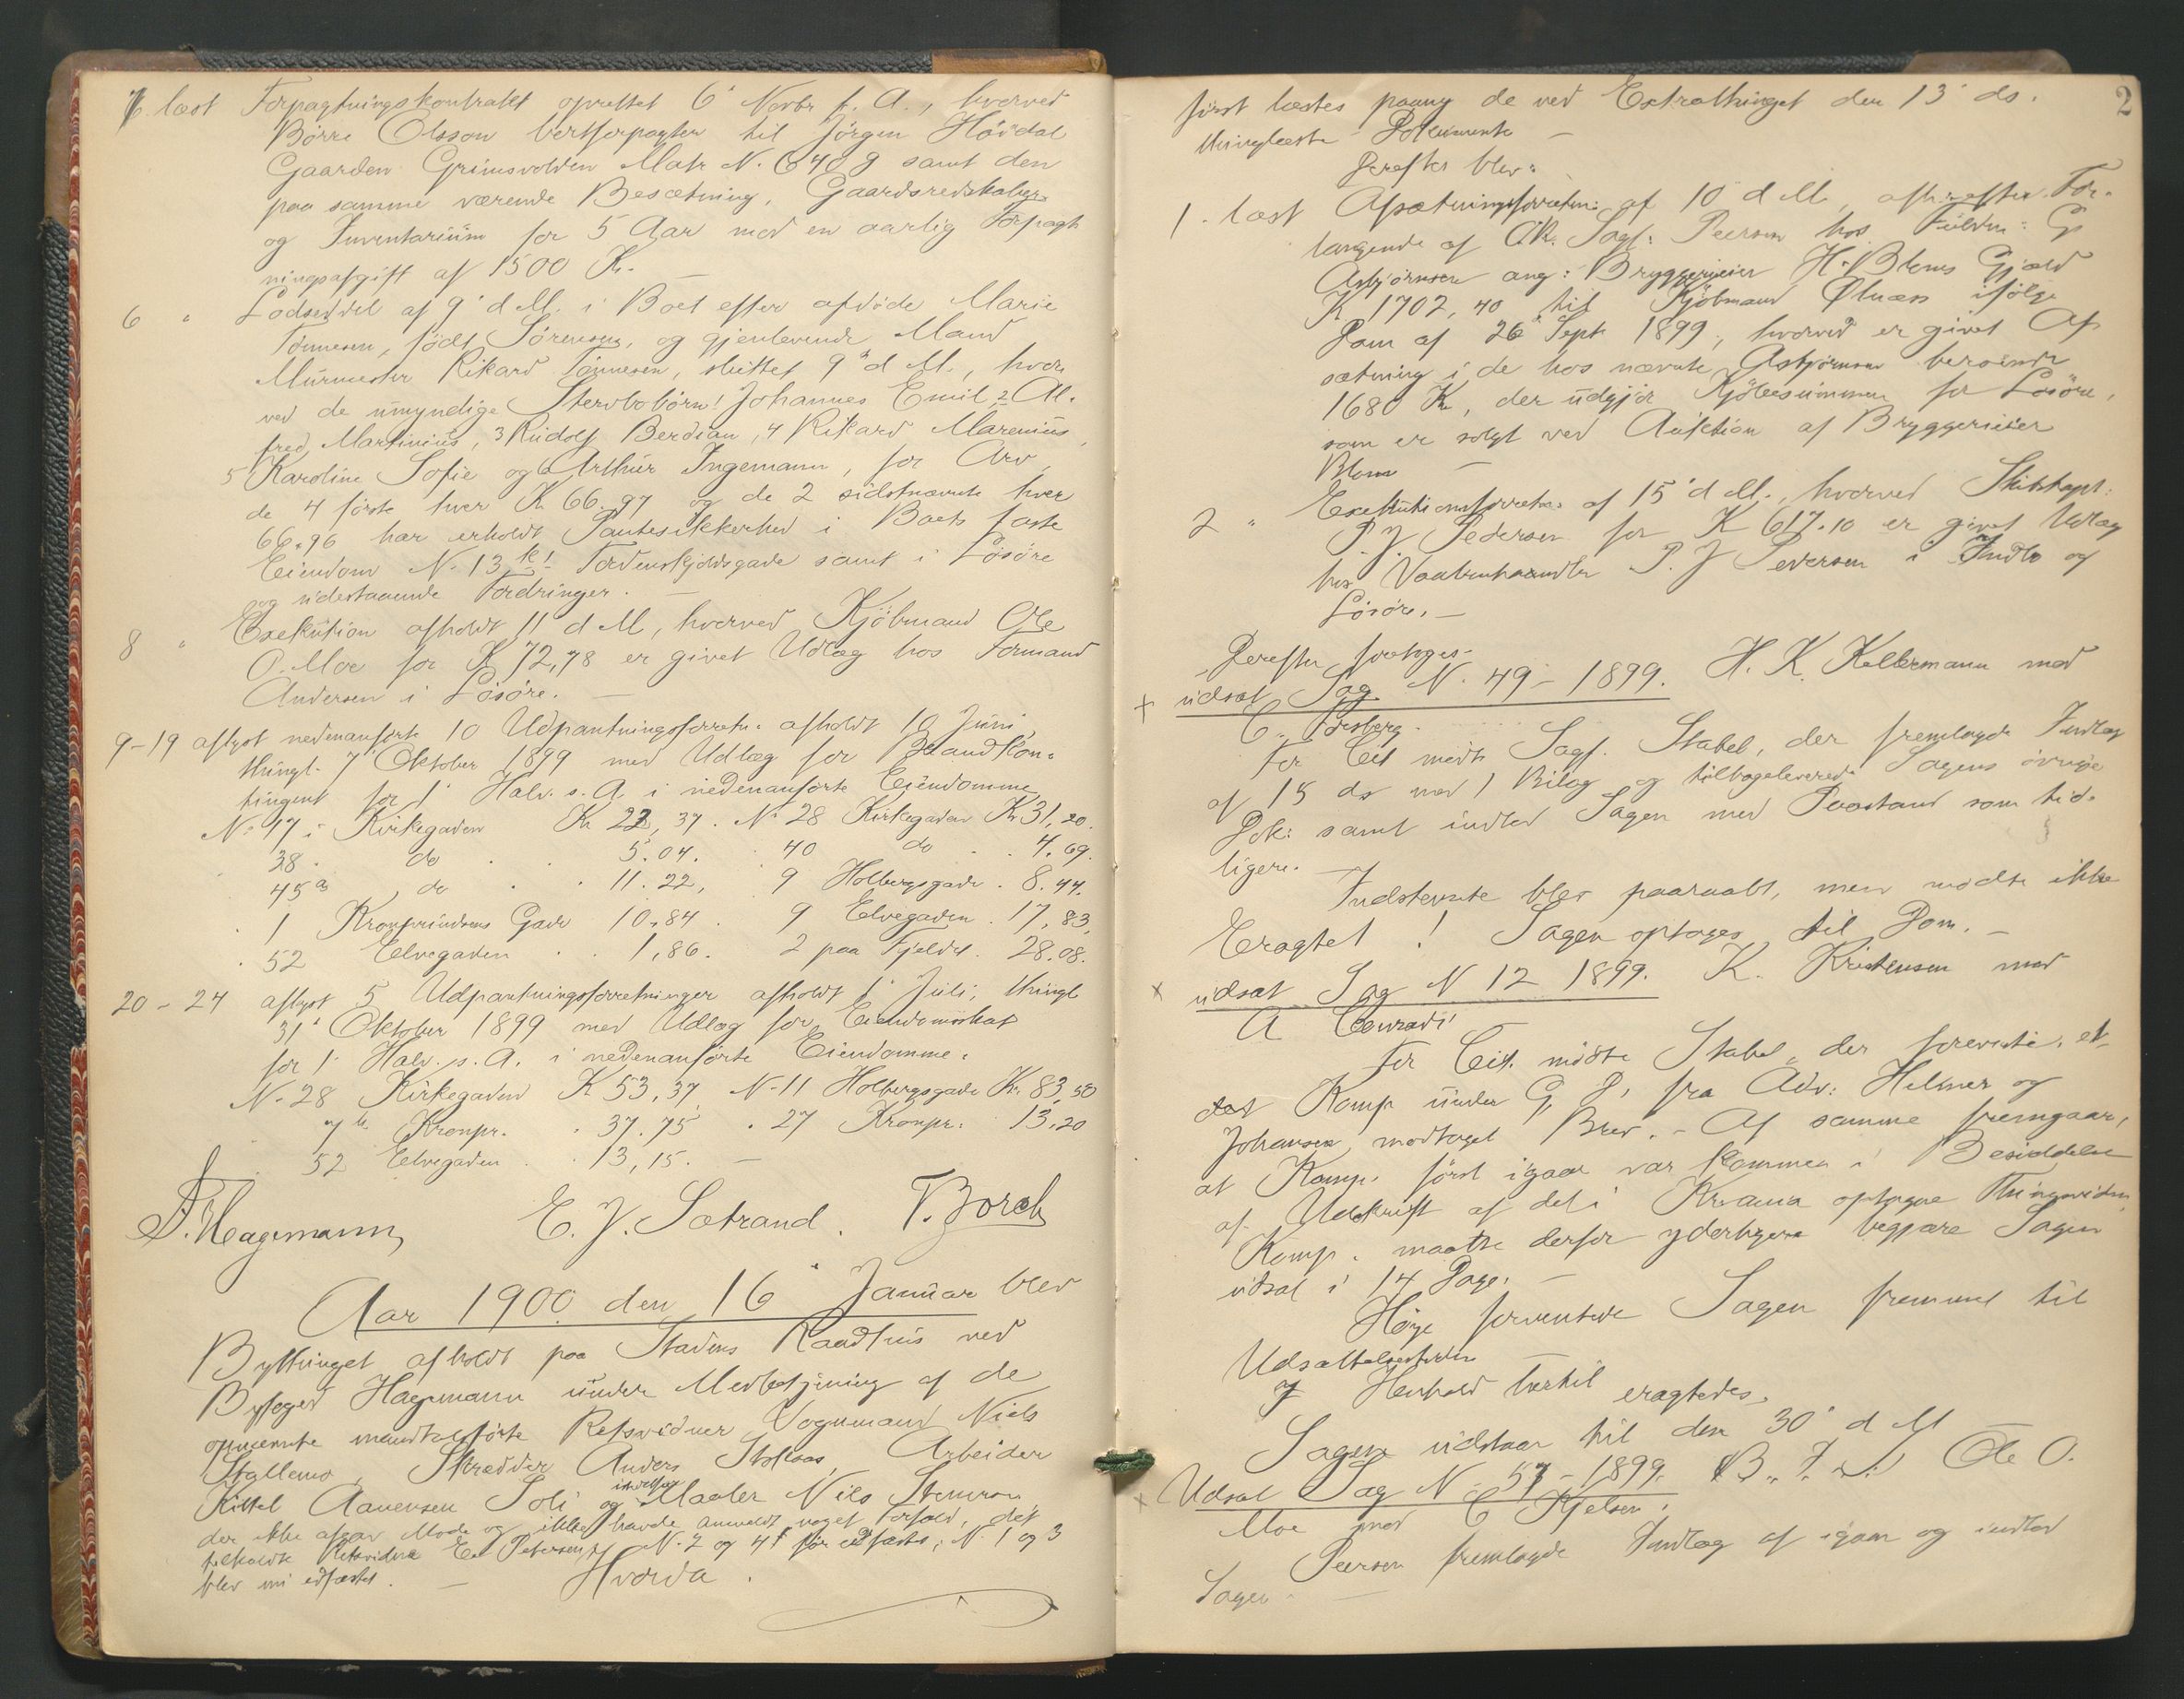 6. læst Forpagtningskontrakt oprettet 6' Novbr f. A., hvorved
Börre Olsson bortforpagter til Jörgen Hövdal
Gaarden Grimsvolden Matr N. 6489 samt den
paa samme værende Besætning, Gaardsredskaber
og Inventarium for 5 Aar mod en aarlig Forpagt
ningsafgift af 1500 Kr. —
6 " Lodseddel af 9' d M. i Boet efter afdöde Marie
Tönnesen, födt Sörensen, og gjenlevende Mand
Murmester Rikard Tönnesen, sluttet 9' d M., hvor
ved de umyndige Sterbobörn: Johannes Emil 2 Al-
fred Martinius, 3 Rudolf Berdian, 4 Rikard Marenius,
5 Karoline Sofie og 6 Arthur Ingemann, for Arv,
de 4 förste hver K 66.97 og de 2 sidstnævnte hver
66.96 har erholdt Pantesikkerhed i Boets faste
Eiendom N. 13 Tordenskjoldsgade samt i Lösöre
og udestaaende Fordringer. —
8 " Exekution afholdt 11 d M, hvorved Kjöbmand Ole
O. Moe for K 72,78 er givet Udlæg hos Formand
Andersen i Lösöre. —
9-19 aflyst nedenanförte 10 Udpantningsforretn: afholdt 10 Juni,
thingl. 7' Oktober 1899 med Udlæg for Brandkon-
tingent for 1' Halv. s. A. i nedenanförte Eiendomme
No 17 i Kirkegaden Kr 22,37. No 28 Kirkegaden Kr 31,20.
38. do . . 5.04. 40 do . . 4.69.
45a do . . 11.22, 9 Holbergsgade . 8.44.
. 1 Kronprindsens Gade 10.84 . 9 Elvegaden . 17,83,
. 52 Elvegaden . . 1,86. 2 paa Fjeldet. 28.08.
20-24 aflyst 5 Udpantningsforretninger afholdt 1' Juli, thingl
31' Oktober 1899 med Udlæg for Eiendomsskat
for 1' Halv. s. A. i nedenanförte Eiendomme.
N. 28 Kirkegaden K 53,37 N. 11 Holbergsgade Kr. 83,50
7b Kronpr. . 37.75 . 27 Kronpr: 13,20
52 Elvegaden . . 13,15. —
Hagemann E. J. Sætrand. T. Borch
Aar 1900 den 16' Januar blev
Bythinget afholdt paa Stadens Raadhus ved
Byfoged Hagemann under Medbetjening af de
opnævnte mandtalsförte Retsvidner Vognmand Niels
Stallemo, Skrædder Anders Stokaas, Arbeider
Kittel Aanensen Soli og Maaler Nils Stenersen
der ikke afgav Möde og ikke havde anmeldt noget Forfald, det
tilkaldte Retsvidne E. Petersen, N. 2 og 4 för edfæstet, N. 1 og 3
blev nu edfæstet. — Hvorda.
2
först læstes paany de ved Extrathinget den 13' ds.
thinglæste Dokumente —
Derefter blev:
1. læst Afsætningsforretn: af 10 d M, afh: efter For-
langende af O.R. Sagf. Peersen hos Fuldm: G
Asbjörnsen ang: Bryggerieier H. Bloms Gjæld
K 1702,40 til Kjöbmand Ølnæss ifölge
Dom af 26' Sept 1899, hvorved er givet Af
sætning i de hos nævnte Asbjörnsen beroende
1680 Kr, der udgjör Kjöbesummen for Lösöre,
som er solgt ved Auktion af Bryggerieier
Blom —
2 " Exekutionsforretn: af 15' d M., hvorved Skibskapt:
P J Pedersen for K 617.10 er givet Udlæg
hos Vaabenhandler P. J Pedersen i Indbo og
Lösöre. —
Derefter foretoges:
udsat Sag N. 49 - 1899. H. K. Kellermann mod
C. Forsberg.
For Cit mødte Sagf. Stabel, der fremlagde Indlæg
af 15 ds med 1 Bilag og tilbageleverede Sagens övrige
Dok: samt indlod Sagen med Paastand som tid-
ligere. —
Indstevnte blev paaraabt, men mödte ikke
Eragtet! Sagen optages til Dom. —
udsat Sag N 12 1899. K. Kristensen mod
A Conradi
For Cit. mödte Stabel, der foreviste et
dat Komp under G. D. fra Adv: Helmer og
Johansen modtaget Brev. - Af samme fremgaar,
at Komp. först igaar var kommen i Besiddelse
af Udskrift af det i Kr.ania optagne Thingsvidne,
Komp. maatte derfor yderligere begjære Sagen
udsat i 14 Dage. —
Høye forventede Sagen fremmet til
Udsættelsestiden —
I Henhold hertil eragtedes,
Sagen udstaar til den 30' d M —
Udsat Sag N. 57 - 1899. Ole O.
Moe mod C Kjelsen.
Peersen fremlagde Indlæg af igaar og indlod
Sagen. —